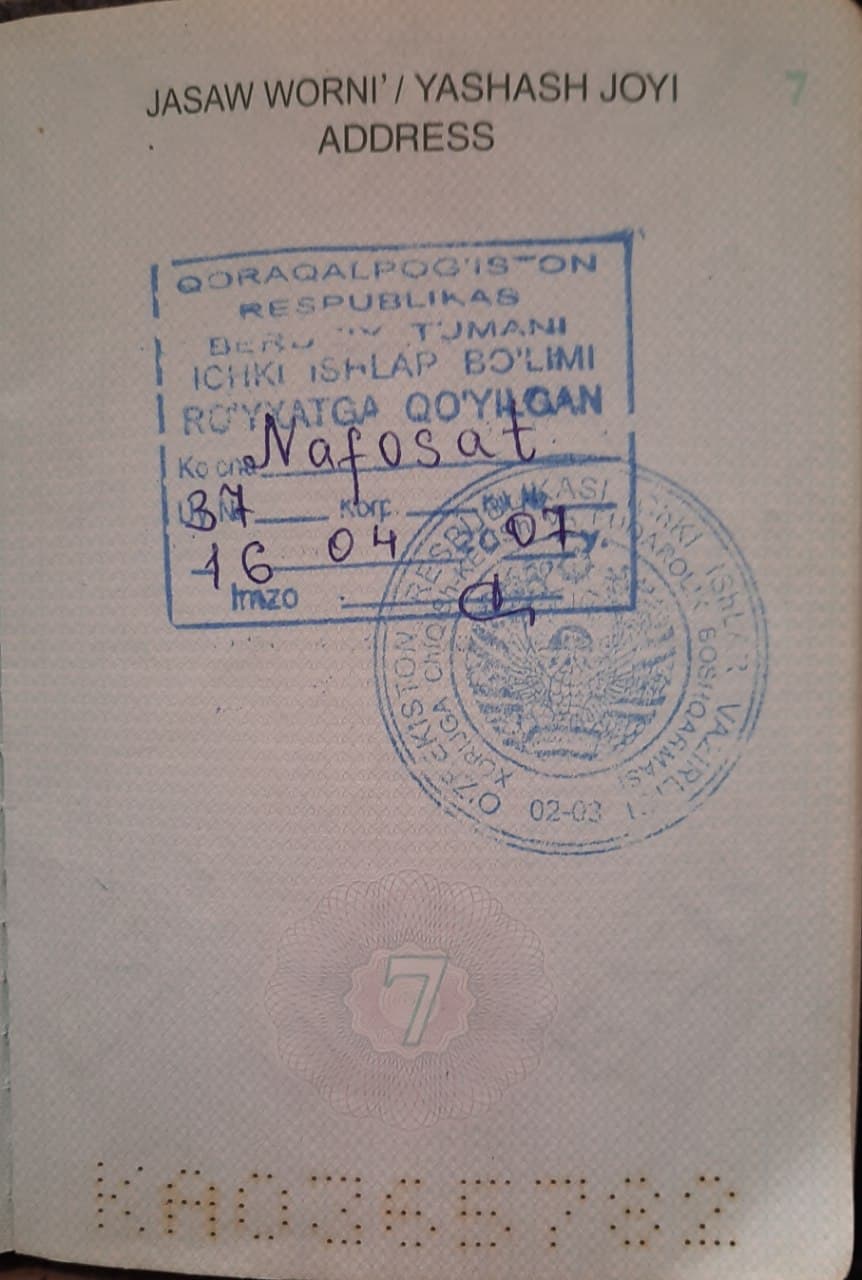 7
JASAW WORNI' / YASHASH JOYI
ADDRESS
QORAQALPOG'ISTON
RESPUBLIKAS
TUMANI
ICHKI ISHLAP BO'LIMI
RO'YXATGA QO'YILGAN
Nafosat
37 Korp.
16 04 2007 y.
Imzo
O'ZBEKISTON RESPUBLIKASI ICHKI ISHLAR VAZIRLIGI
XORIJGA CHIQISH-KELISH BOSHQARMASI
02-03
7
KA0365782